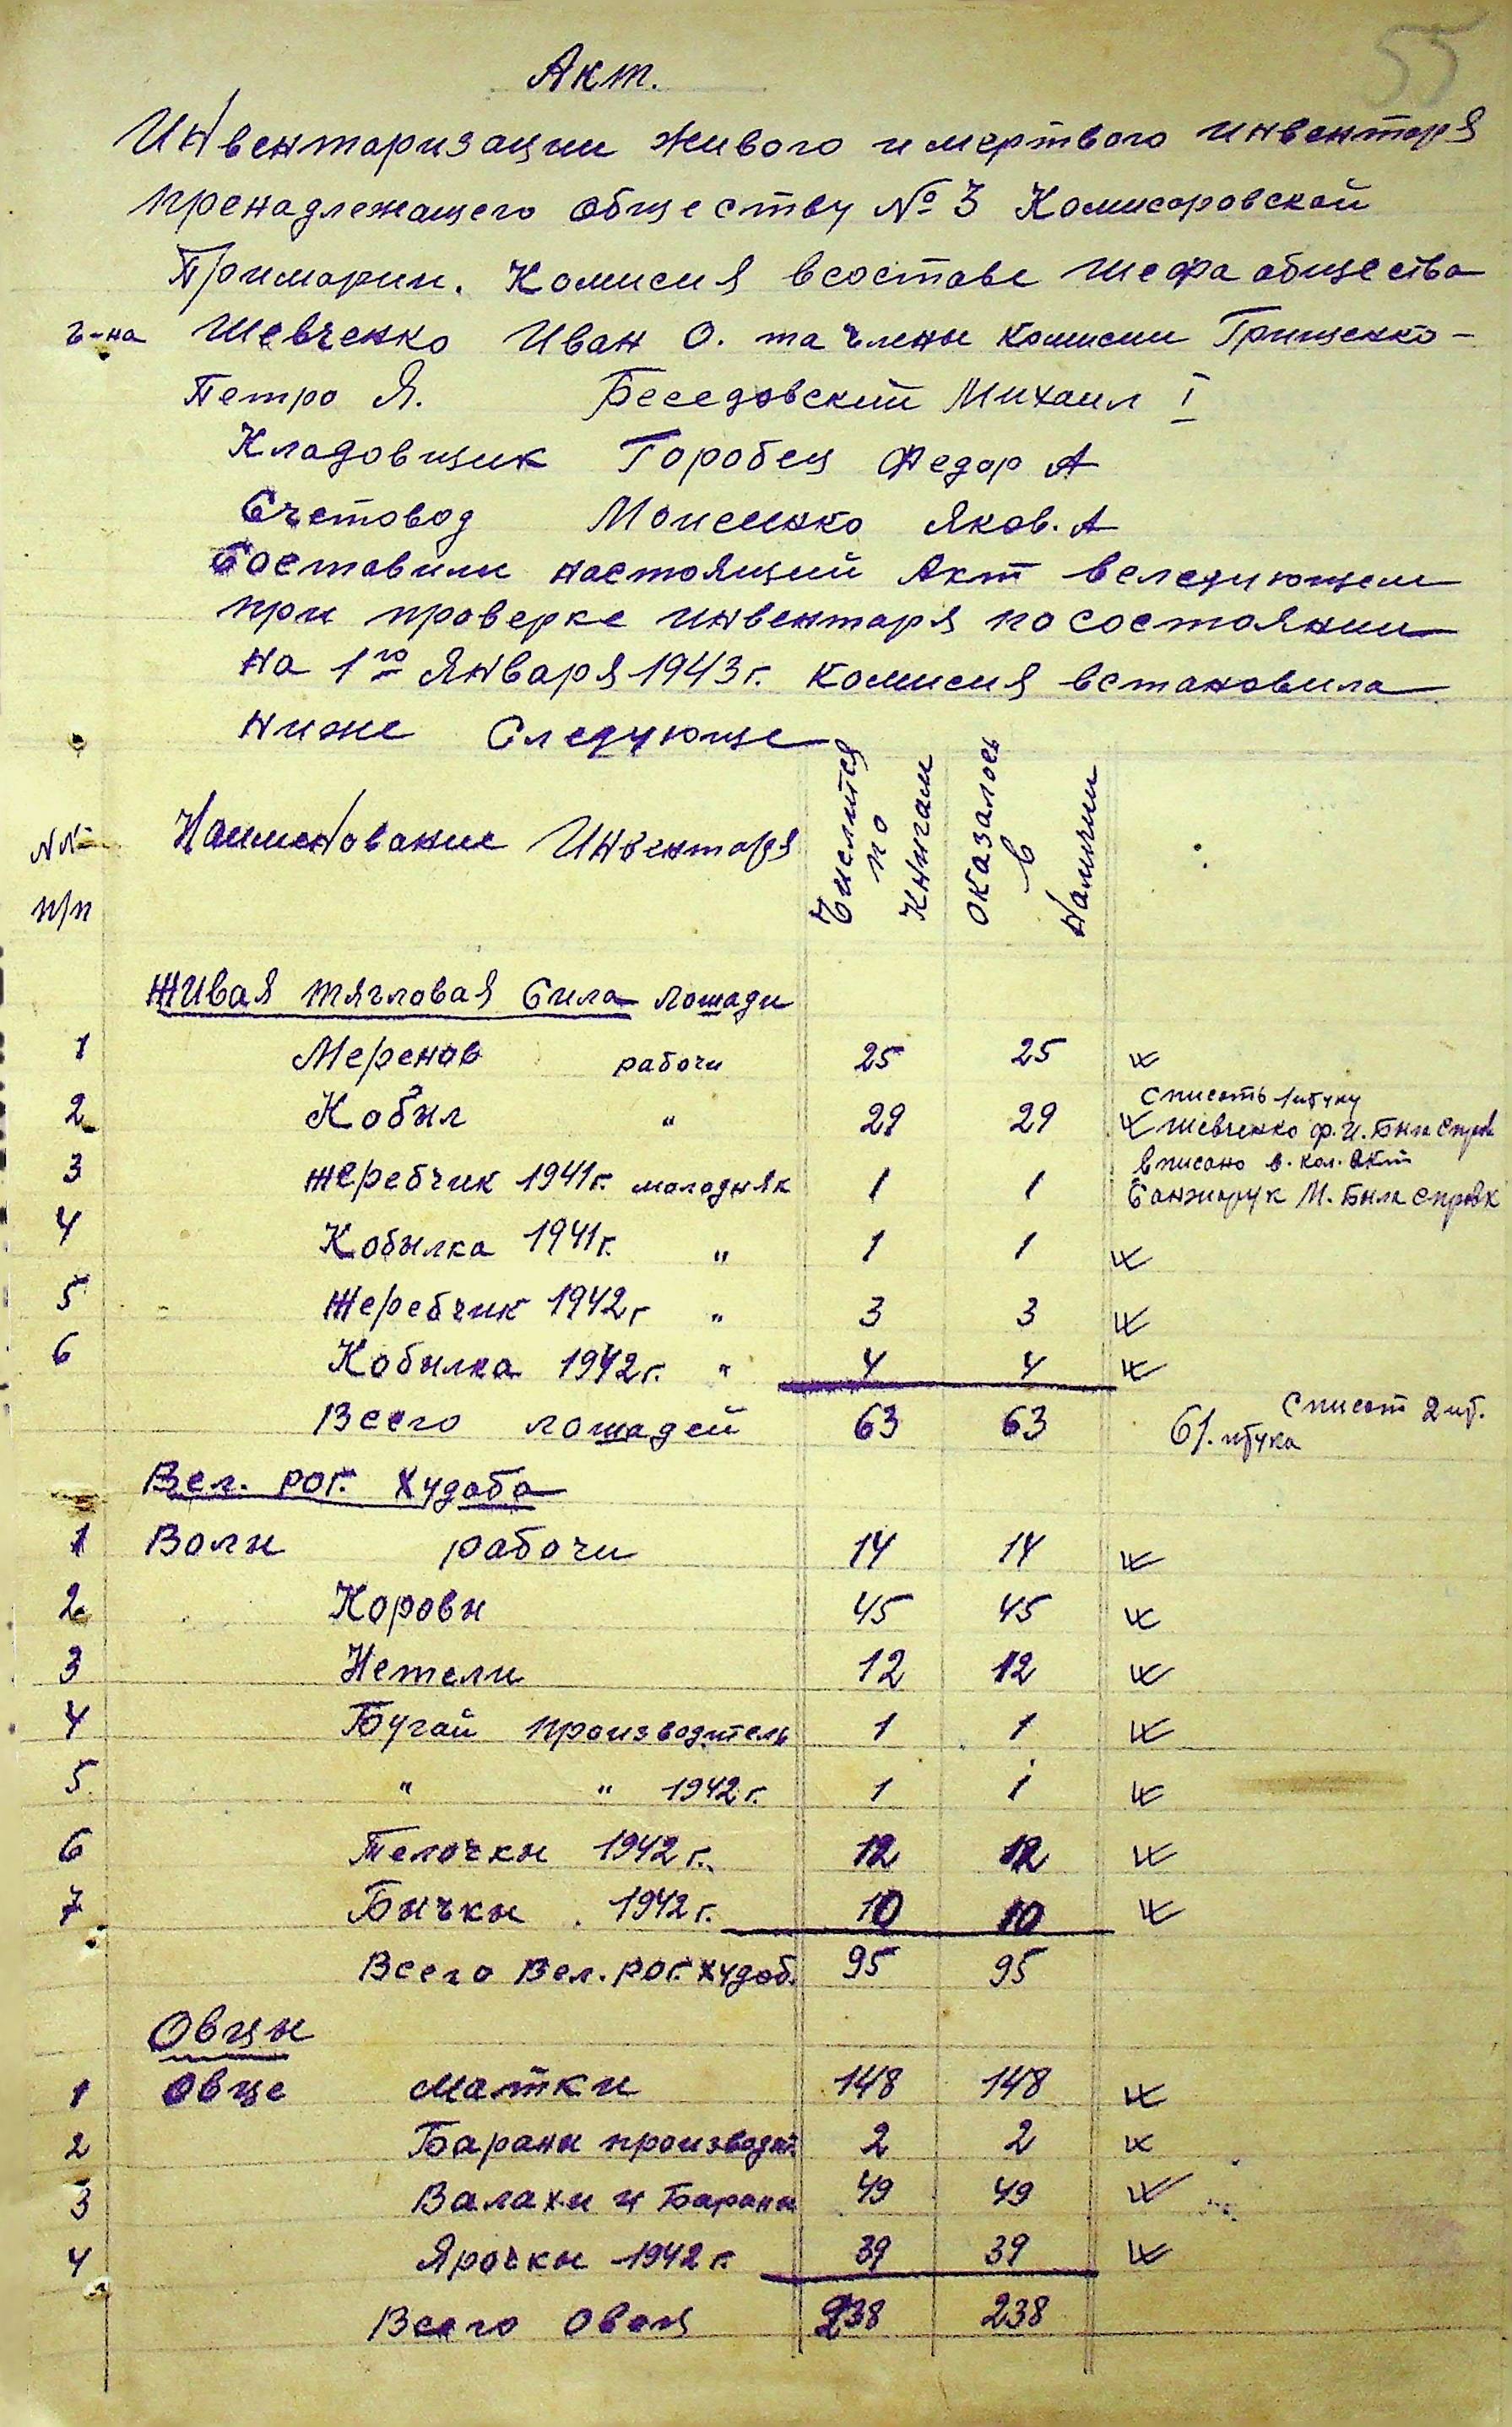 55
Акт.
Инвентаризации живого и мертвого инвентаря
пренадлежащего обществу № 3 Комисаровской
Примарии. Комисия всоставе шефа общества
г-на Шевченко Иван О. та члены комисии Грищенко-
Петро Я. Беседовский Михаил I
Кладовщик Горобец Федор А
Счетовод Моисеенко Яков. А
Составили настоящий Акт вследующем
при проверке инвентаря по состоянии
на 1го Января 1943 г. комисия встановила
ниже Следующе
№№ п/п Наименование Инвентаря Числится по книгам оказалось в наличии
Живая тягловая Сила лошади
1 Меренов рабочи 25 25
списать 1 штуку
2 Кобыл " 29 29 Шевченко Ф. И. Была справ
вписано в. кол. акт
3 жеребчик 1941 г. молодняк 1 1 Санжарук М. Была справк
4 Кобылка 1941 г. " 1 1
5 Жеребчик 1942 г " 3 3
6 Кобылка 1942 г. " 4 4
Всего лошадей 63 63 61. штука Списат 2 шт.
Вел. рог. худоба
1 Волы рабочи 14 14
2 Коровы 45 45
3 Нетели 12 12
4 Бугай производитель 1 1
5 " " 1942 г. 1 1
6 Телочкы 1942 г. 12 12
7 Бычкы 1942 г. 10 10
Всего Вел. рог. худоб. 95 95
Овцы
1 Овце матки 148 148
2 Бараны производит. 2 2
3 Валахи и Бараны 49 49
4 Ярочкы 1942 г. 39 39
Всего Овец 238 238